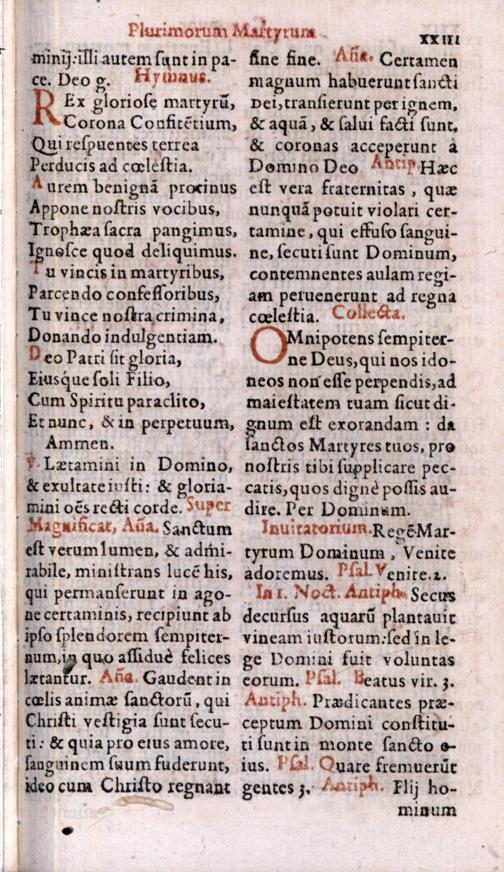 Plurimorum Martyrum
XXIII
minij: illi autem sunt in pa-
ce. Deo g. Hymnus.
REx gloriosę martyrū,
Corona Confitētium,
Qui respuentes terrea
Perducis ad cœlestia.
Aurem benignā protinus
Appone nostris vocibus,
Trophæa sacra pangimus,
Ignosce quod deliquimus.
Tu vincis in martyribus,
Parcendo confessoribus,
Tu vince nostra crimina,
Donando indulgentiam.
Deo Patri sit gloria,
Eiusque soli Filio,
Cum Spiritu paraclito,
Et nunc, & in perpetuum,
Ammen.
℣. Lætamini in Domino,
& exultate iusti: & gloria-
mini oēs recti corde. Super
Magnificat, Aña. Sanctum
est verum lumen, & admi-
rabile, ministrans lucē his,
qui permanserunt in ago-
ne certaminis, recipiunt ab
ipso splendorem sempiter-
num, in quo assiduè felices
lætantur. Aña. Gaudent in
cœlis animæ sanctorū, qui
Christi vestigia sunt secu-
ti: & quia pro eius amore,
sanguinem suum fuderunt,
ideo cum Christo regnant
sine fine. Aña. Certamen
magnum habuerunt sancti
Dei, transierunt per ignem,
& aquā, & salui facti sunt,
& coronas acceperunt à
Domino Deo Antip. Hæc
est vera fraternitas, quæ
nunquā potuit violari cer-
tamine, qui effuso sangui-
ne, secuti sunt Dominum,
contemnentes aulam regi-
am peruenerunt ad regna
cœlestia. Collecta.
OMnipotens sempiter-
ne Deus, qui nos ido-
neos non esse perpendis, ad
maiestatem tuam sicut di-
gnum est exorandam: da
sanctos Martyres tuos, pro
nostris tibi supplicare pec-
catis, quos dignè possis au-
dire. Per Dominum.
Inuitatorium. Regē Mar-
tyrum Dominum, Venite
adoremus. Psal. Venite. 2.
In 1. Noct. Antiph. Secus
decursus aquarū plantauit
vineam iustorum: sed in le-
ge Domini fuit voluntas
eorum. Psal. Beatus vir. 3.
Antiph. Prædicantes præ-
ceptum Domini constitu-
ti sunt in monte sancto e-
ius. Psal. Quare fremuerūt
gentes 3. Antiph. Filj ho-
minum